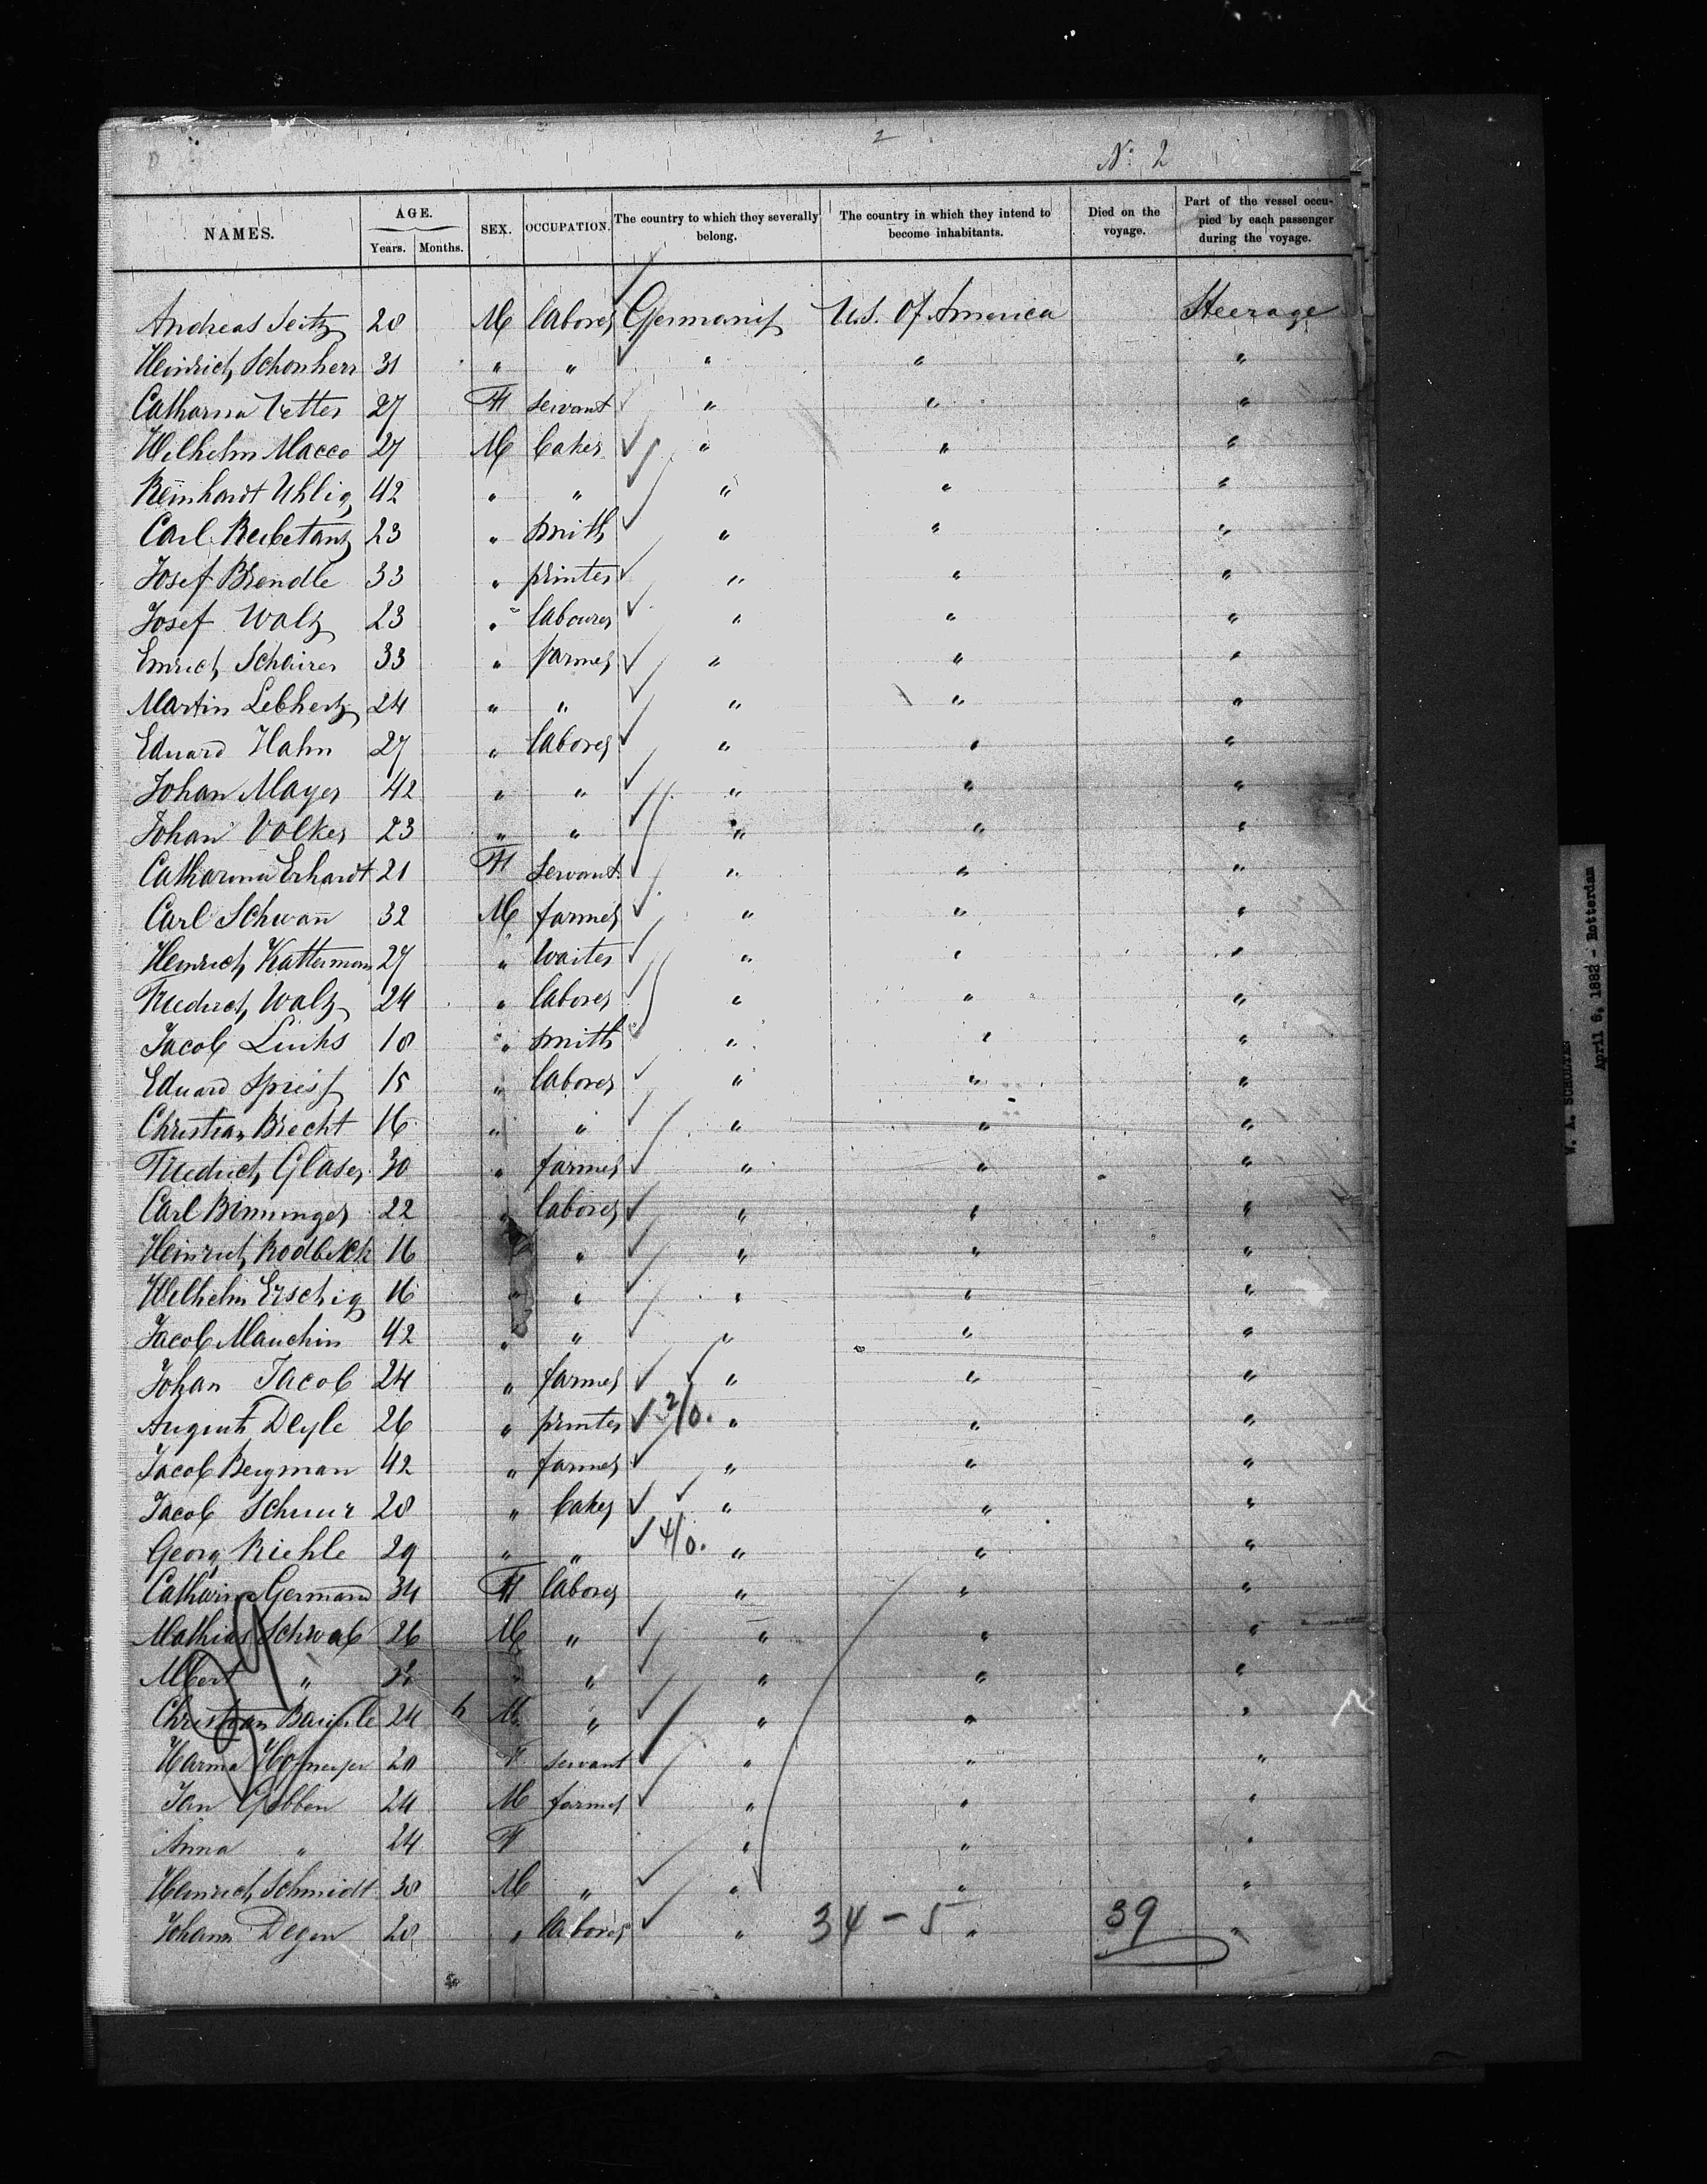 2
No 2
NAMES. AGE. Years. Months. SEX. OCCUPATION. The country to which they severally belong. The country in which they intend to become inhabitants. Died on the voyage. Part of the vessel occupied by each passenger during the voyage.
Andreas Seitz 28 M labores Germany U.S. Of America Steerage
Heinrich Schonherr 31 " " " " "
Catharina Vetter 27 F servant " " "
Wilhelm Macco 27 M baker " " "
Reinhardt Uhlig 42 " " " " "
Carl Reibetanz 23 " smith " " "
Josef Brendle 33 " printer " " "
Josef Walz 23 " labourer " " "
Emrich Schairer 33 " farmer " " "
Martin Lebherz 24 " " " " "
Eduard Hahn 27 " laborer " " "
Johan Mayer 42 " " " " "
Johan Volker 23 " " " " "
Catharina Erhardt 21 F Servant " " "
Carl Schwan̄ 32 M farmer " " "
Heinrich Kattermann 27 " waiter " " "
Friedrich Walz 24 " laborer " " "
Jacob 18 " smith " " "
Eduard Spiess 15 " laborer " " "
Christian Brecht 16 " " " " "
Friedrich Glaser 30 " farmer " " "
Carl Binninger 22 " laborer " " "
Heinrich Rodbeck 16 " " " "
Wilhelm Erschig 16 " " " " "
Jacob Mauchin 42 " " " " "
Johan Jacob 24 " farmer " " "
August Deyle 26 " printer 2/0. " " "
Jacob Bergman 42 " farmer " " "
Jacob 28 " baker " " "
Georg Riehle 29 " " 4/0. " " "
Catharina Germann 34 F laborer " " "
Mathias Schwab 26 M " " " "
Albert " " " " " "
Christian Bauerle 24 M " " " "
Harma 20 F servant " " "
Jan Gebben 24 M farmer " " "
Anna " 24 F " " "
Heinrich Schmidt 38 M " " " "
Johann Degen 28 " laborer " " "
34 - 5 39
W. A. SCHOLTEN
April 6, 1882 - Rotterdam